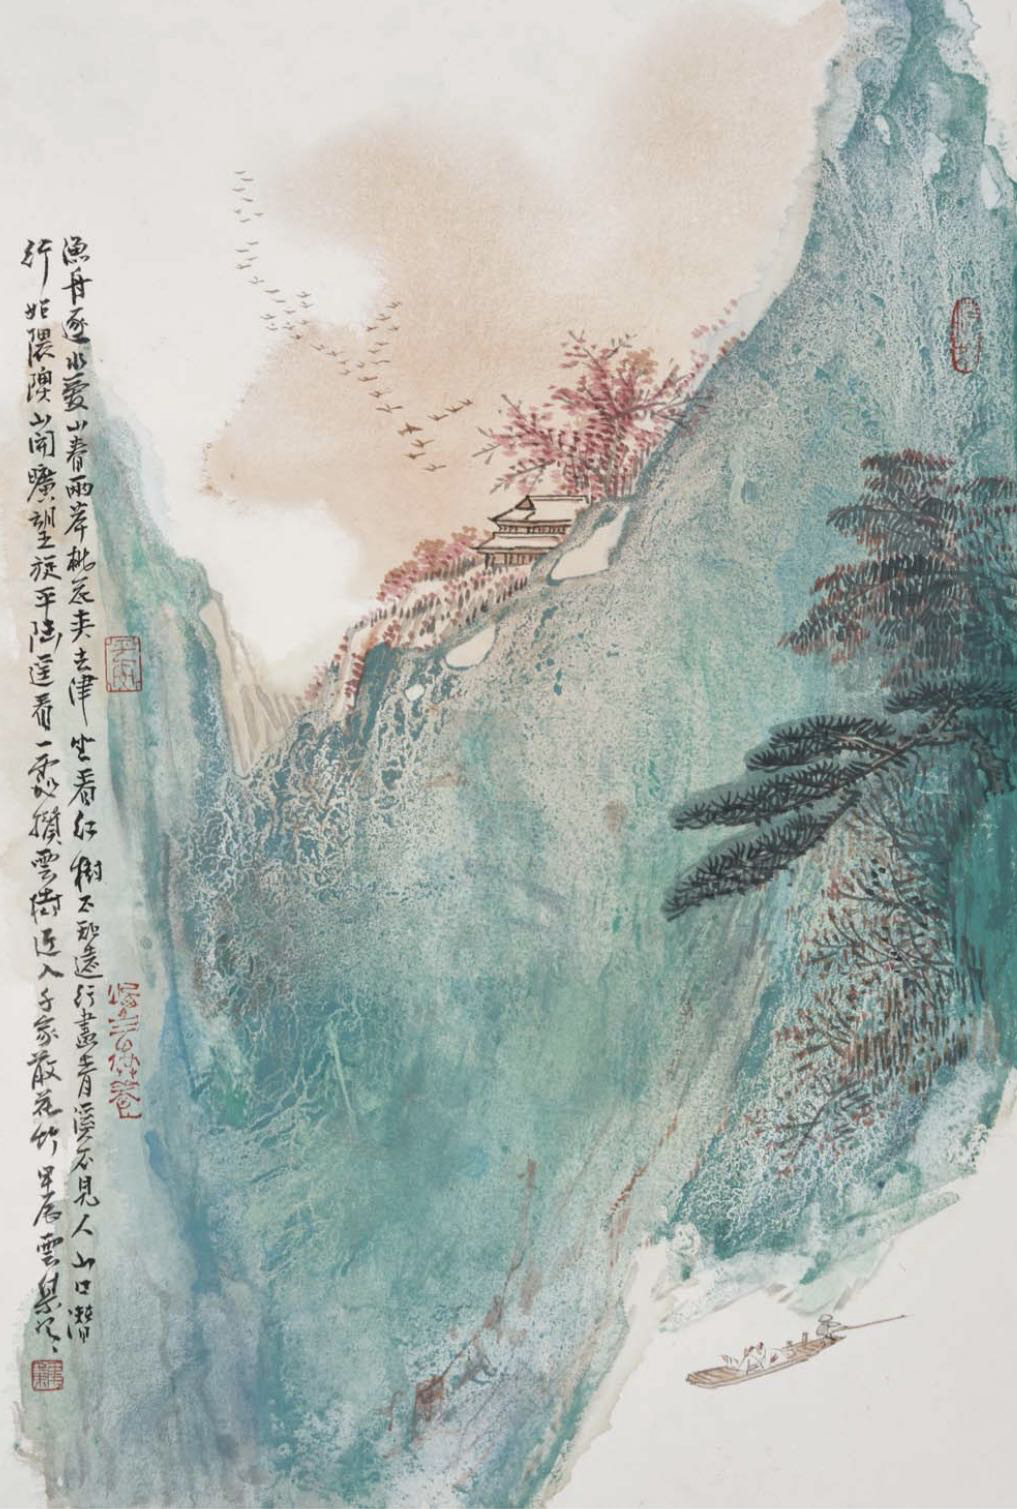 漁舟逐水愛山春兩岸桃花夾去津坐看紅樹不知遠行盡青溪不見人山口潛
行始隈隩山開曠望旋平陸遙看一處攢雲樹近入千家散花竹甲辰雲